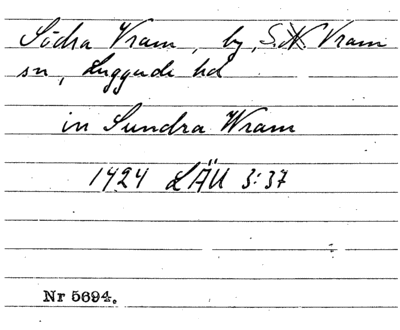 Södra Vram, by, S. Vram
sn, Luggude hd
in Sundra Wram
1424 LÄU 3:37
Nr 5694.